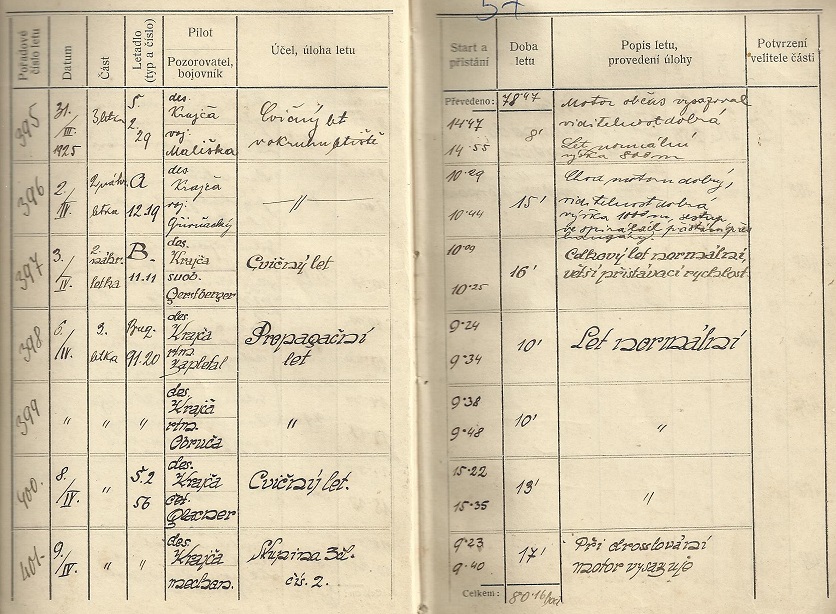 57
Pořadové číslo letu
Datum
Část
Letadlo (typ a číslo)
Pilot
Pozorovatel, bojovník
Účel, úloha letu
Start a přistání
Doba letu
Popis letu, provedení úlohy
Potvrzení velitele části
Převedeno: 78·47
395
31. / III. 1925
3 letka
Š. 2. 29
des. Krajča
voj. Mališka
Cvičný let
v okruhu letiště
14·47
14·55
8'
Motor občas vysazoval
viditelnost dobrá
Let normální
výška 800 m
396
2. / IV.
letka
A 12.19
des Krajča
voj.
"
10·29
10·44
15'
Chod motoru dobrý,
viditelnost dobrá
výška 1000 m, sestup
ve spirálách
397
3. / IV.
2. náhr. letka
B. 11.11
des. Krajča
svob. Gerstberger
Cvičný let
10·09
10·25
16'
Celkový let normální,
větší přistávací rychlost
398
6. / IV.
3. letka
91·20
des. Krajča
rtm. Zapletal
Propagační
let
9·24
9·34
10'
Let normální
399
"
"
"
des. Krajča
rtm. Obruča
"
9·38
9·48
10'
"
400.
8. / IV.
"
Š.2 56
des. Krajča
čet.
Cvičný let.
15·22
15·35
13'
"
401.
9. / IV.
"
"
des. Krajča
mechan.
Skupina
čís. 2.
9·23
9·40
17'
Při drosslování
motor vysazuje
Celkem: 80·16